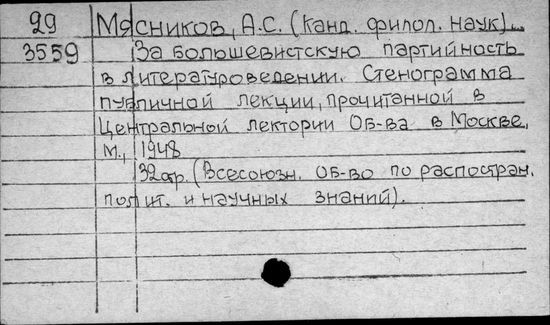 29 Мясников, А.С. (канд. филол. наук)..
3559 За большевистскую партийность
в литературоведении. Стенограмма
публичной лекции, прочитанной в
Центральной лектории Об-ва в Москве.
М., 1948
32стр. (Всесоюзн. Об-во по распостран.
полит. и научных знаний).